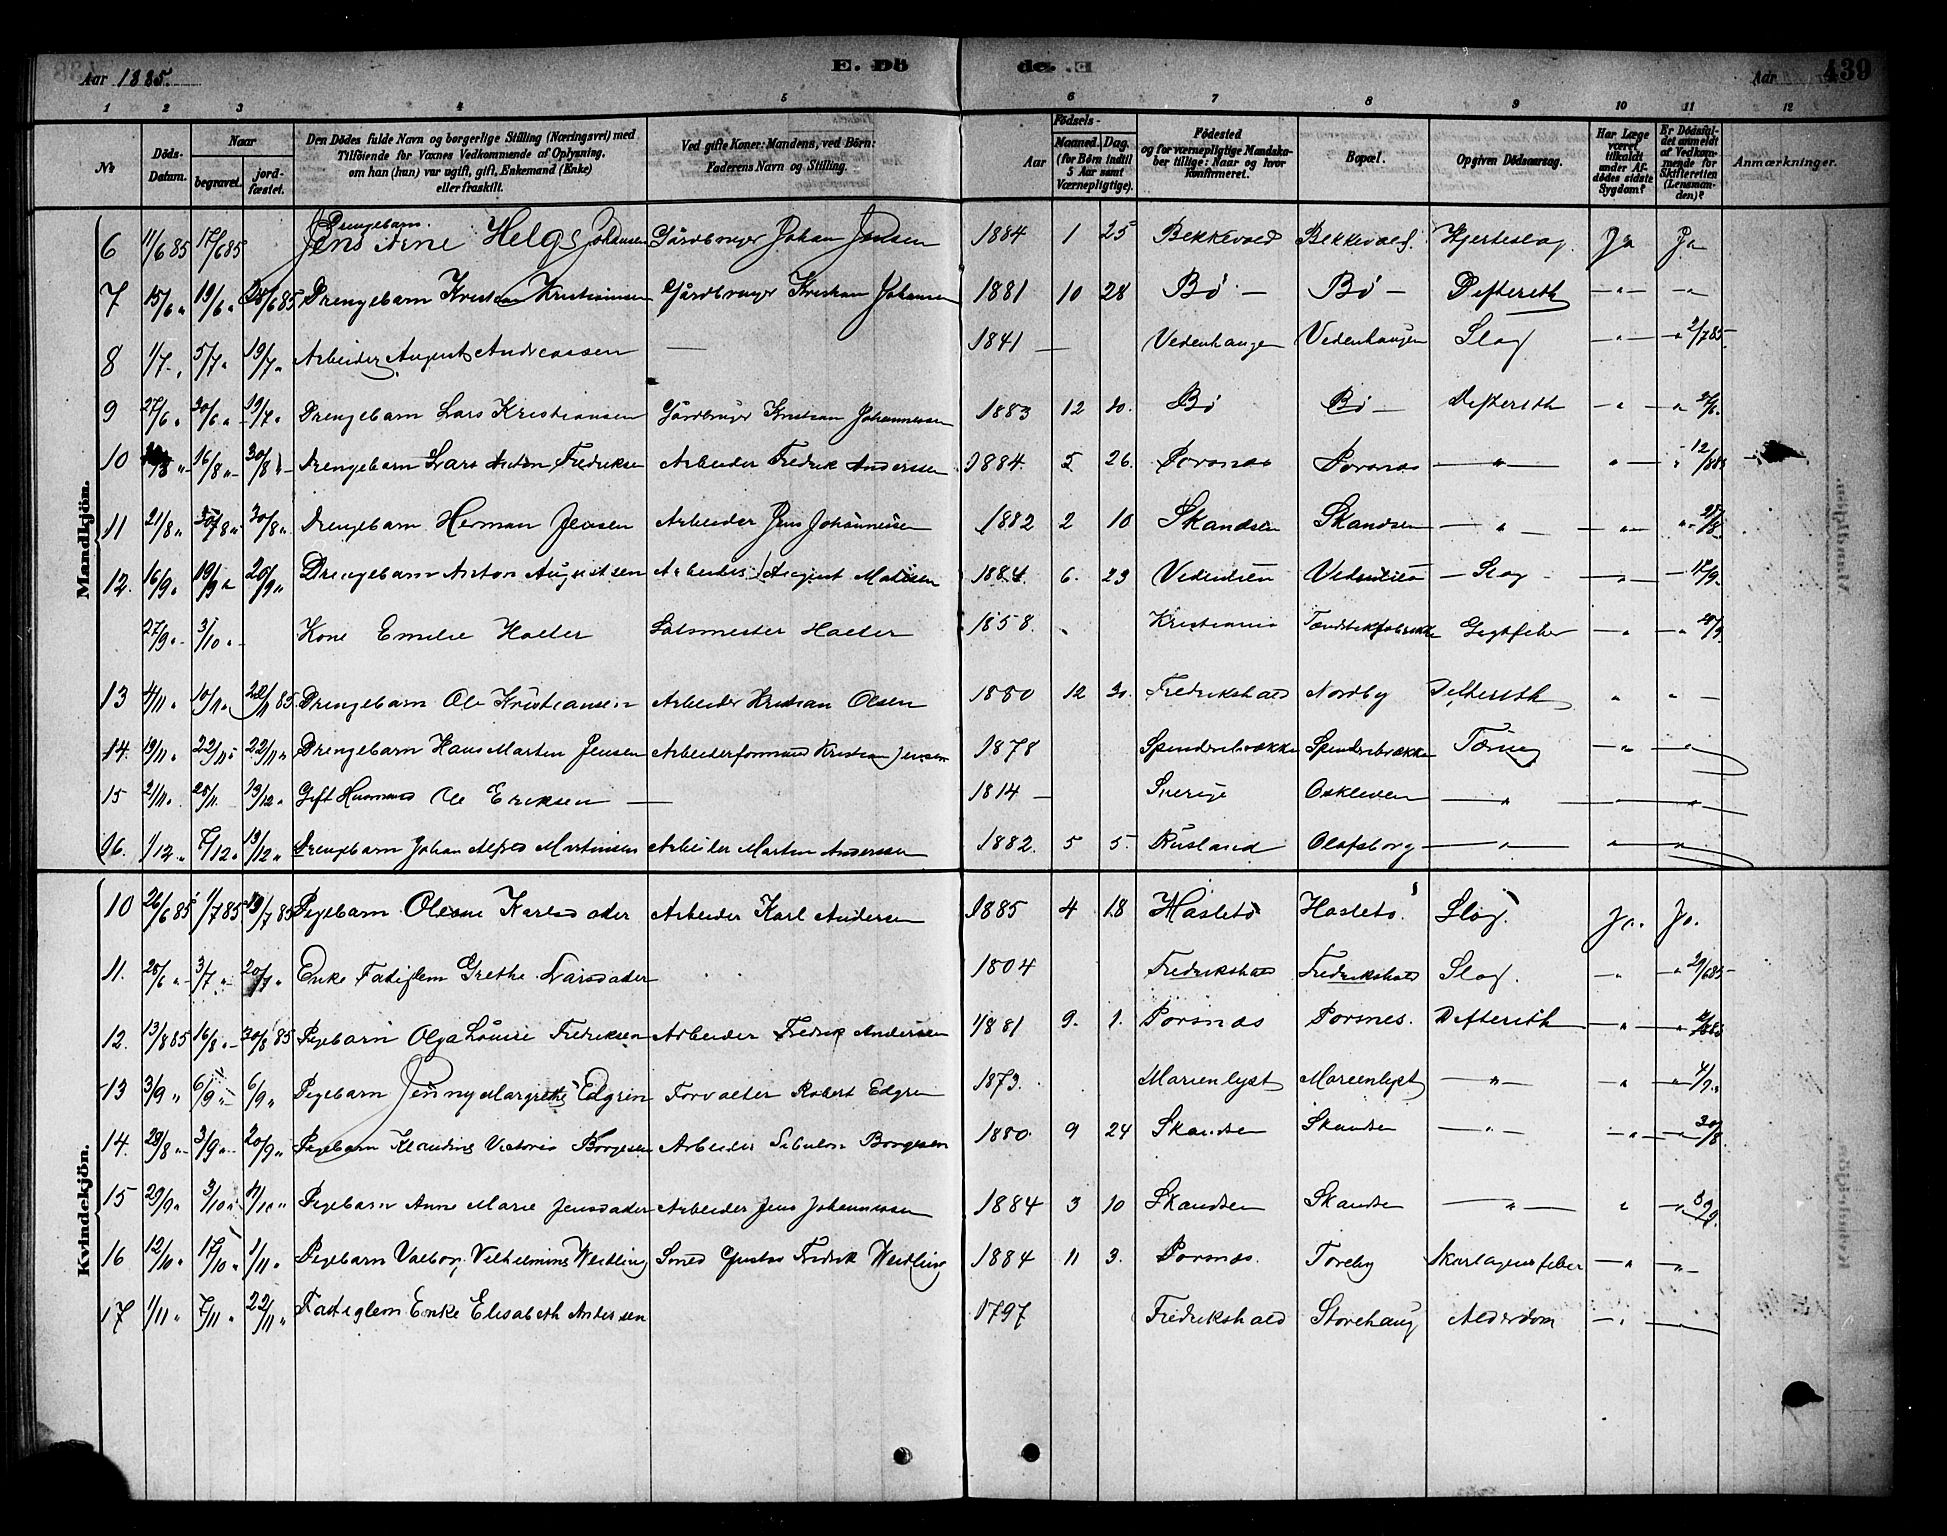 Aar 1885. E. Dö de. Aar 439
1 2 3 4 5 6 7 8 9 10 11 12
No Döds-Datum. Naar begravet. jordfæstet. Den Dödes fulde Navn og borgerlige Stilling (Næringsvei) med Tilföiende for Voxnes Vedkommende af Oplysning, om han (hun) var ugift, gift, Enkemand (Enke) eller fraskilt. Ved gifte Koner: Mandens, ved Börn: Faderens Navn og Stilling. Födsels- Aar Maaned. Dag. (for Börn indtil 5 Aar samt Værnepligtige). Födested og for værnepligtige Mandskaber tillige: Naar og hvor konfirmeret. Bopæl. Opgiven Dödsaarsag. Har Læge været tilkaldt under Afdödes sidste Sygdom? Er Dödsfaldet anmeldt af Vedkommende for Skifteretten (Lensmanden)? Anmærkninger.
Mandkjön.
6 11/6 85 17/6 85 Drengebarn Jens Arne Helge Johansen Gårdbruger Johan Jensen 1884 1 25 Bekkevold Bekkevold. Hjerteslag Ja Ja
7 15/6 " 19/6 " 28/6 85 Drengebarn Kristian Kristiansen Gårdbruger Kristian Johansen 1881 10 28 Bö - Bö - Difterith - " - - " -
8 1/7 " 5/7 " 19/7 " Arbeider August Andreassen — 1841 — Vedenhaugen Vedenhaugen Slag - " - " 2/7 85
9 27/6 " 30/6 " 19/7 " Drengebarn Lars Kristiansen Gårdbruger Kristian Johannessen 1883 12 10. Bö Bö - Difterith - " - - "
10 16/8 " 30/8 " Drengebarn Lars Anton Fredriksen Arbeider Fredrik Anderssen 1884 5 26. Porsnes Porsnes — " — " — 12/8 85
11 21/8 " 30/8 " 30/8 " Drengebarn Herman Jensen Arbeider Jens Johannesen 1882 2 10 Skandsen Skandsen — " — - " - "
12. 16/9 " 19/9 " 20/9 " Drengebarn Anton Augustsen Arbeider August Madsen 1884 6. 23 Vedendsen Vedendsen - Slag - — " — - 17/9.
27/9 " 3/10 " Kone Emilie Holter Salsmester Holter 1858. Kristiania Tændstikfabrikke Gigtfeber — " — - "
13 4/11 " 10/11 " 22/11 85 Drengebarn Ole Kristiansen Arbeider Kristian Olsen 1880 12 30. Fredrikshald Nordby Difterith " " —
14. 19/11 " 22/11 " 22/11 " Drengebarn Hans Martin Jensen Arbeiderformand Kristian Jensen 1878 Spindrebrække Spindrebrække Tæring - " - "
15 2/11 " 13/12 " Gift Husmand Ole Eriksen — — 1814 — Sverige Oskleven — " — — " —
16. 1/12 " 7/12 " 13/12 " Drengebarn Johan Alfred Martinsen Arbeider Martin Anderssen 1882. 5 5. Rusland Olafsborg — " — " "
Kvindekjön.
10 26/6 85 1/7 85 19/7 85 Pigebarn Oleane Karlsdader Arbeider Karl Andersen 1885 4 18 Hasletö Hasletö. Slag. Ja. Ja.
11. 3/7 " 20/7 " Enke Fadiglem Grethe Larsdader 1804 Fredrikshald Fredrikshald Slag. - " - "
12. 13/8 85 16/8 " 30/8 85 Pigebarn Olga Louise Fredriksen Arbeider Fredrik Anderssen 1881 9. 1. Porsnes Porsnes. Difterith - " - - "
13 3/9 " 6/9 " 6/9 " Pigebarn Jenny Margrethe Edgren Forvalter Robert Edgren 1873. Marienlyst Marienlyst — " — " - " 4/9.
14. 28/8 " 3/9 " 20/9 " Pigebarn Klaudine Victoria Borgesen Arbeider Sebulon Borgesen 1880. 9 24 Skandsen Skandsen — " — - " - - 30/8.
15 29/9 " 3/10 " 4/10 " Pigebarn Anne Marie Jensdader Arbeider Jens Johannessen 1884 3 10 Skandsen Skandsen — " — " - "
16 12/10 " 17/10 " 1/11 " Pigebarn Valborg Vilhelmine Weidling Smed Gustav Fredrik Weidling 1884 11 3. Porsnes. Toreby Skarlagensfeber - " - "
17 1/11 " 7/11 " 22/11 " Fadiglem Enke Elisabeth Andersen 1797 Fredrikshald Storehaug Alderdom - " —